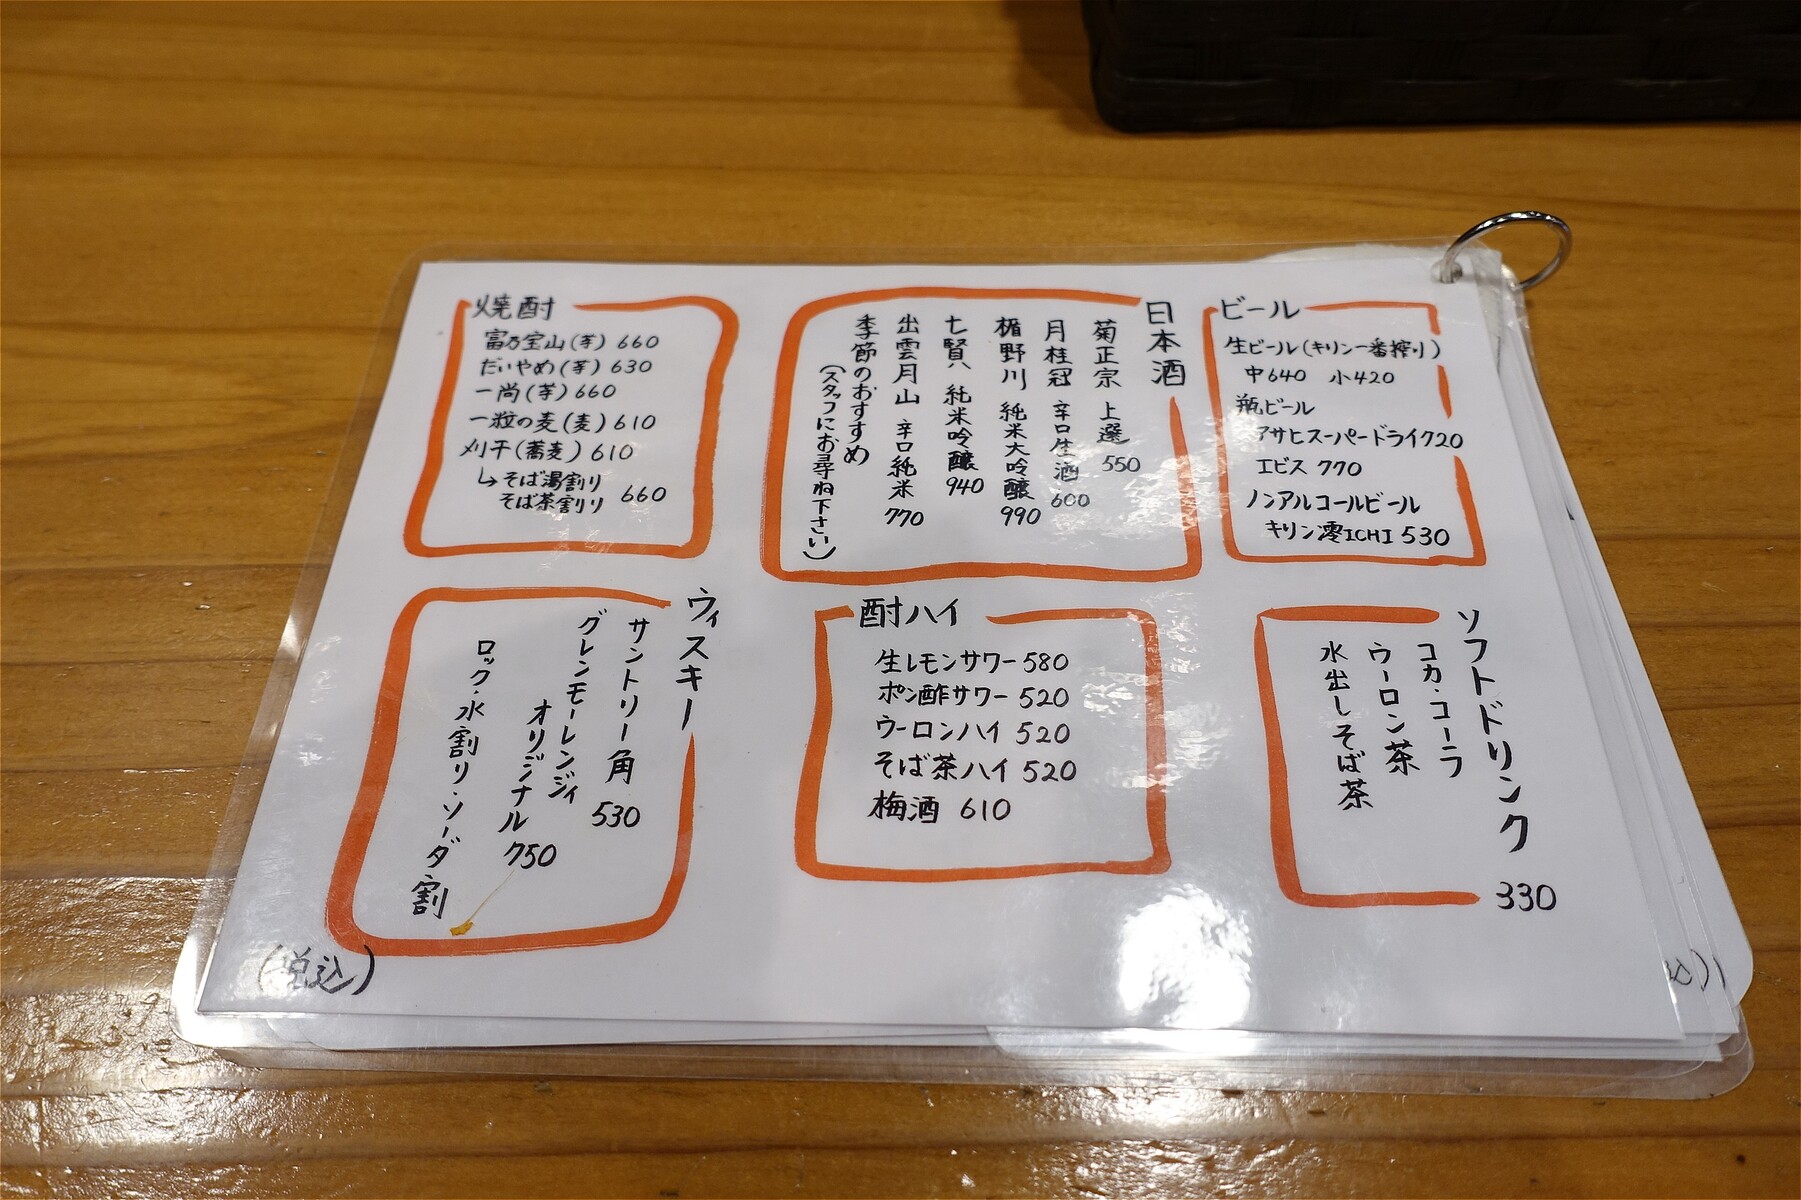 焼酎
富乃宝山(芋) 660
だいやめ(芋) 630
一尚(芋) 660
一粒の麦(麦) 610
刈干(蕎麦) 610
↳そば湯割り
そば茶割り 660
日本酒
菊正宗 上選 550
月桂冠 辛口生酒 600
楯野川 純米大吟醸 990
七賢 純米吟醸 940
出雲月山 辛口純米 770
季節のおすすめ
(スタッフにお尋ね下さい)
ビール
生ビール(キリン一番搾り)
中640 小420
瓶ビール
アサヒスーパードライ720
エビス 770
ノンアルコールビール
キリン零ICHI 530
ウィスキー
サントリー角 530
グレンモーレンジィ
オリジナル 750
ロック・水割り・ソーダ割
酎ハイ
生レモンサワー 580
ポン酢サワー 520
ウーロンハイ 520
そば茶ハイ 520
梅酒 610
ソフトドリンク 330
コカ・コーラ
ウーロン茶
水出しそば茶
(税込)
込)